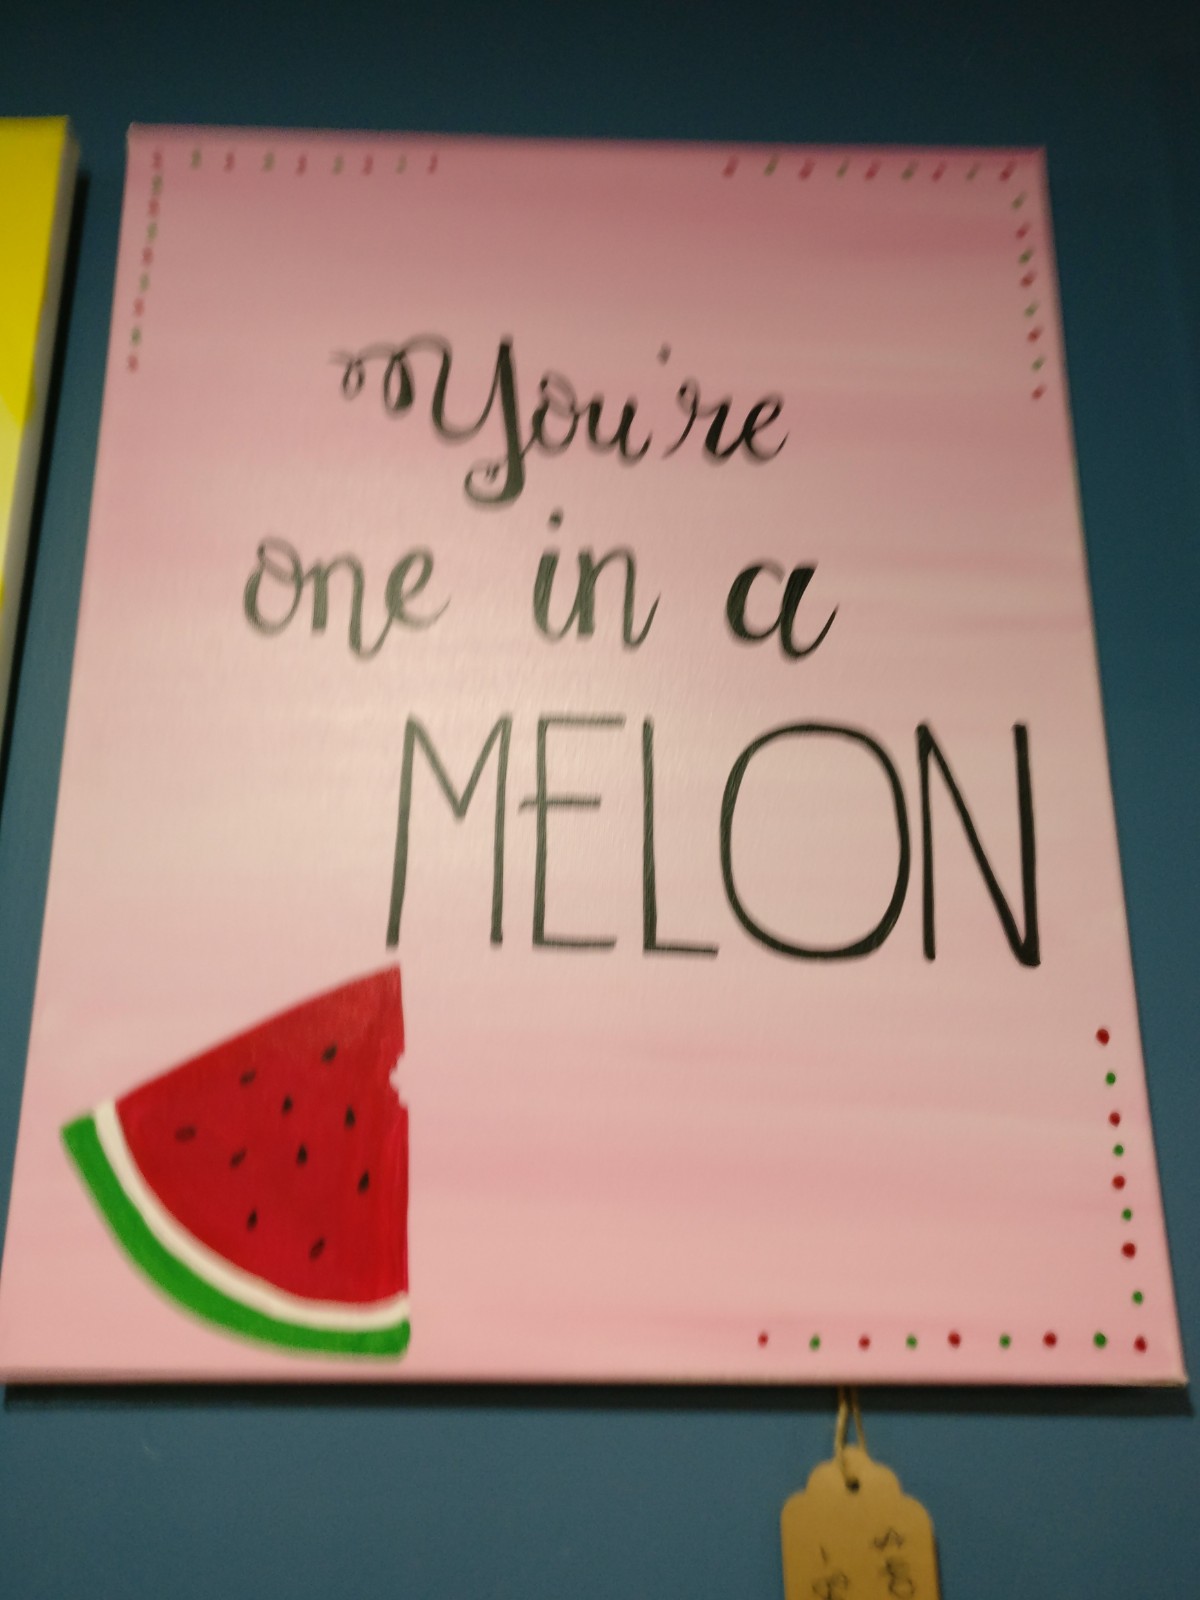 You're
one in a
MELON
$40